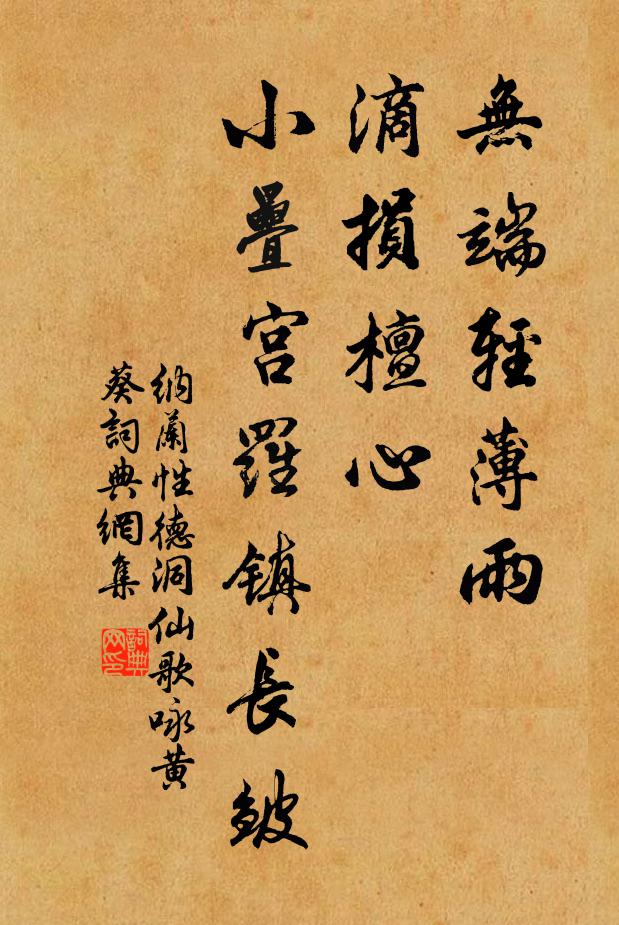 無端輕薄雨
滴損檀心
小疊宮羅鎮長皺
納蘭性德洞仙歌咏黄
葵詞典網集
詞典网印